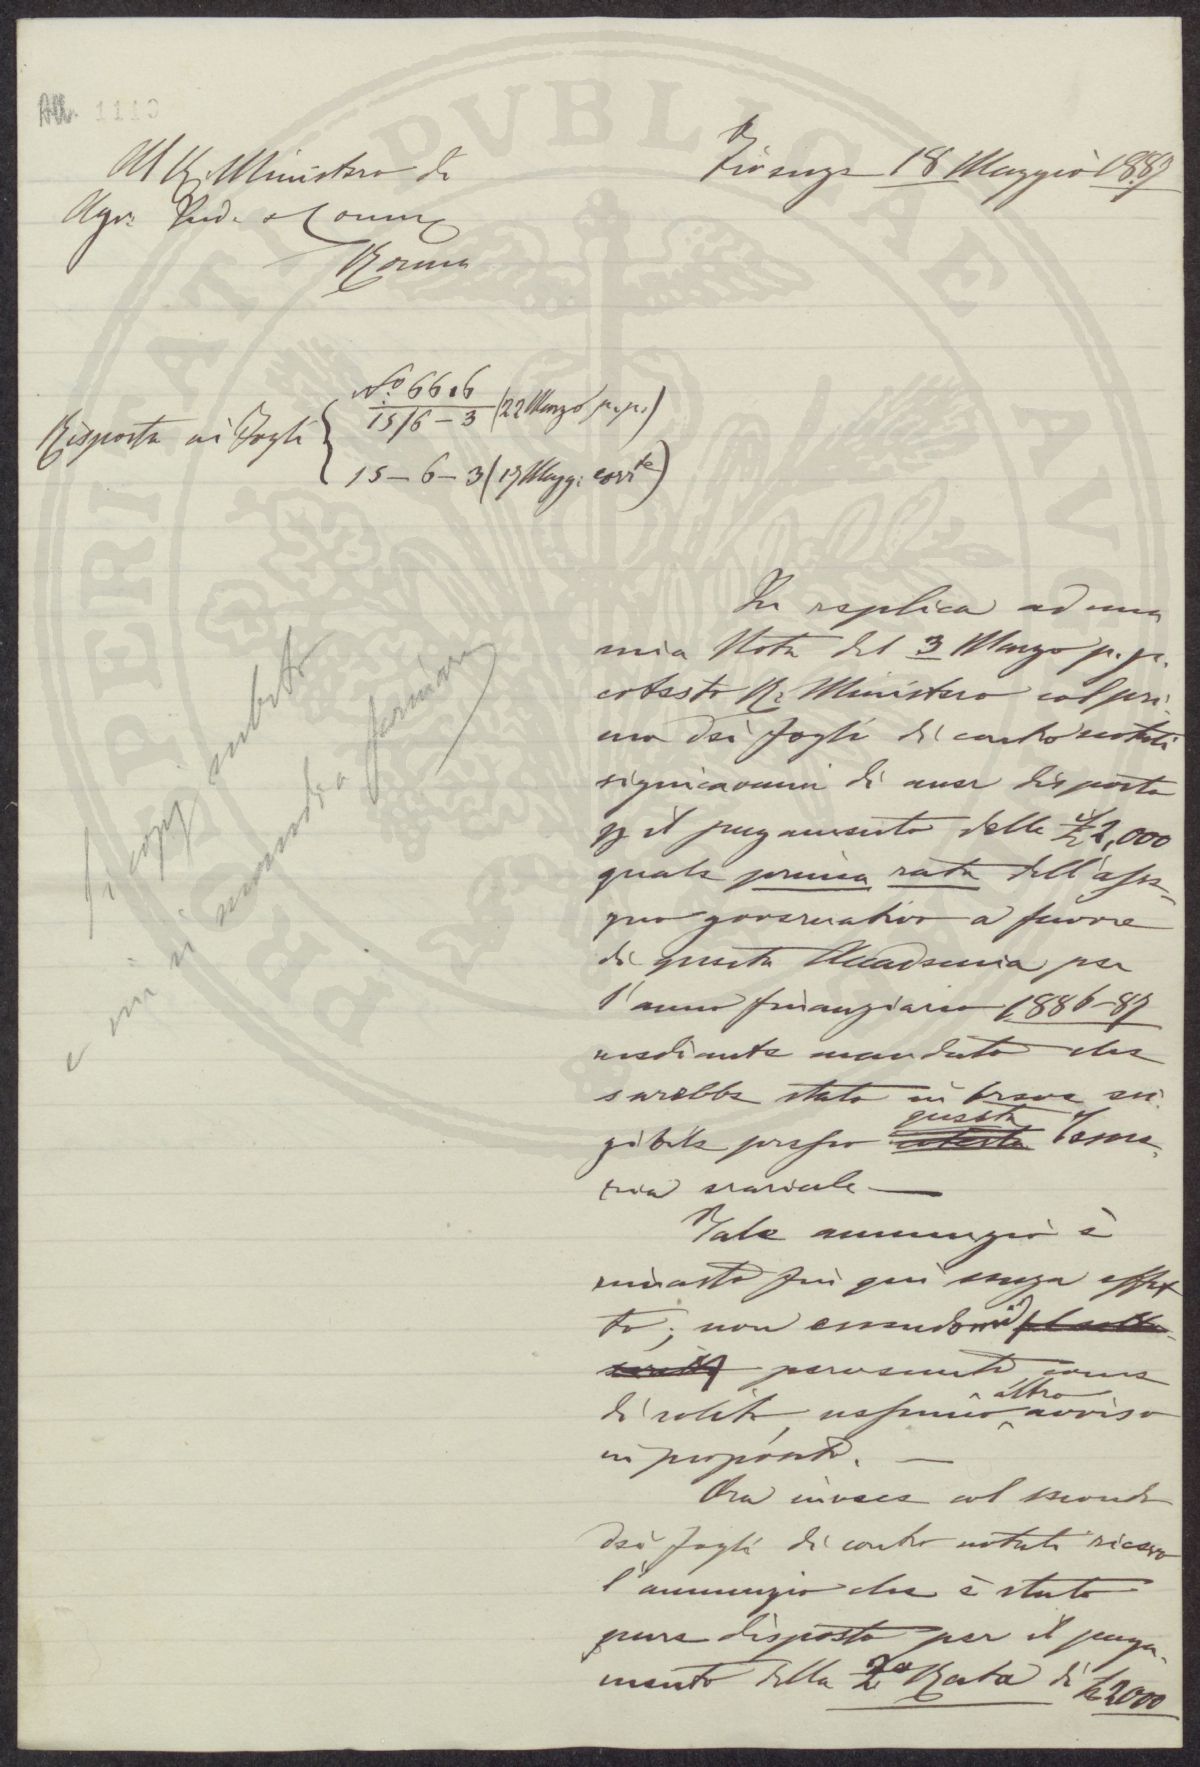 1113
Firenze 18 Maggio 1887
Al R. Ministero di
Agr. Ind. e Comm
Roma
Risposta ai Fogli
No. 6616
15/6-3 (22 Marzo p.p.)
15-6-3 (17 Magg: corrte)
Si copi subito
e mi si mandi a firmare
In replica ad una
mia Nota del 3 Marzo p.p.
cotesto R. Ministero col pri-
mo dei fogli di contro notati
significavami di aver disposto
il pagamento delle £ 2,000
quale prima rata dell'asse-
gno governativo a favore
di questa Accademia per
l'anno finanziario 1886-87
mediante mandato che
sarebbe stato in breve esi-
gibile presso cotesta questa Teso-
reria erariale —
Tale annunzio è
rimasto fin qui senza effet-
to; non essendomi
pervenuto come
di solito, nessuno altro avviso
in proposito. —
Ora invece col secondo
dei fogli di contro notati ricevo
l'annunzio che è stato
pure disposto per il paga-
mento della 2a Rata di £ 2000
PROSPERITATI PVBLICAE AVGENDAE